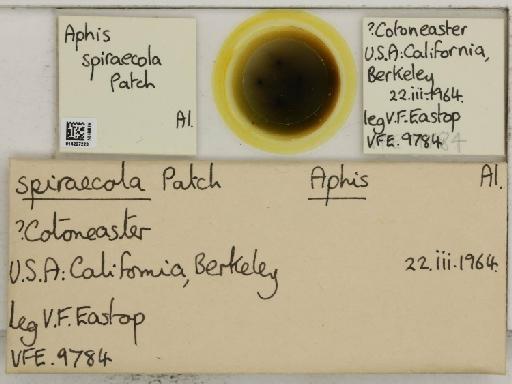 Aphis
spiraecola
Patch
Al.
?Cotoneaster
U.S.A: California,
Berkeley
22.iii.1964.
leg V.F. Eastop
VFE. 9784
spiraecola Patch Aphis Al.
?Cotoneaster
U.S.A: California, Berkeley 22.iii.1964.
leg V.F. Eastop
VFE. 9784